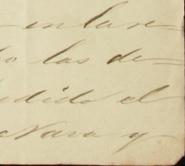 en la re-
o las de-
dido el
Nava y